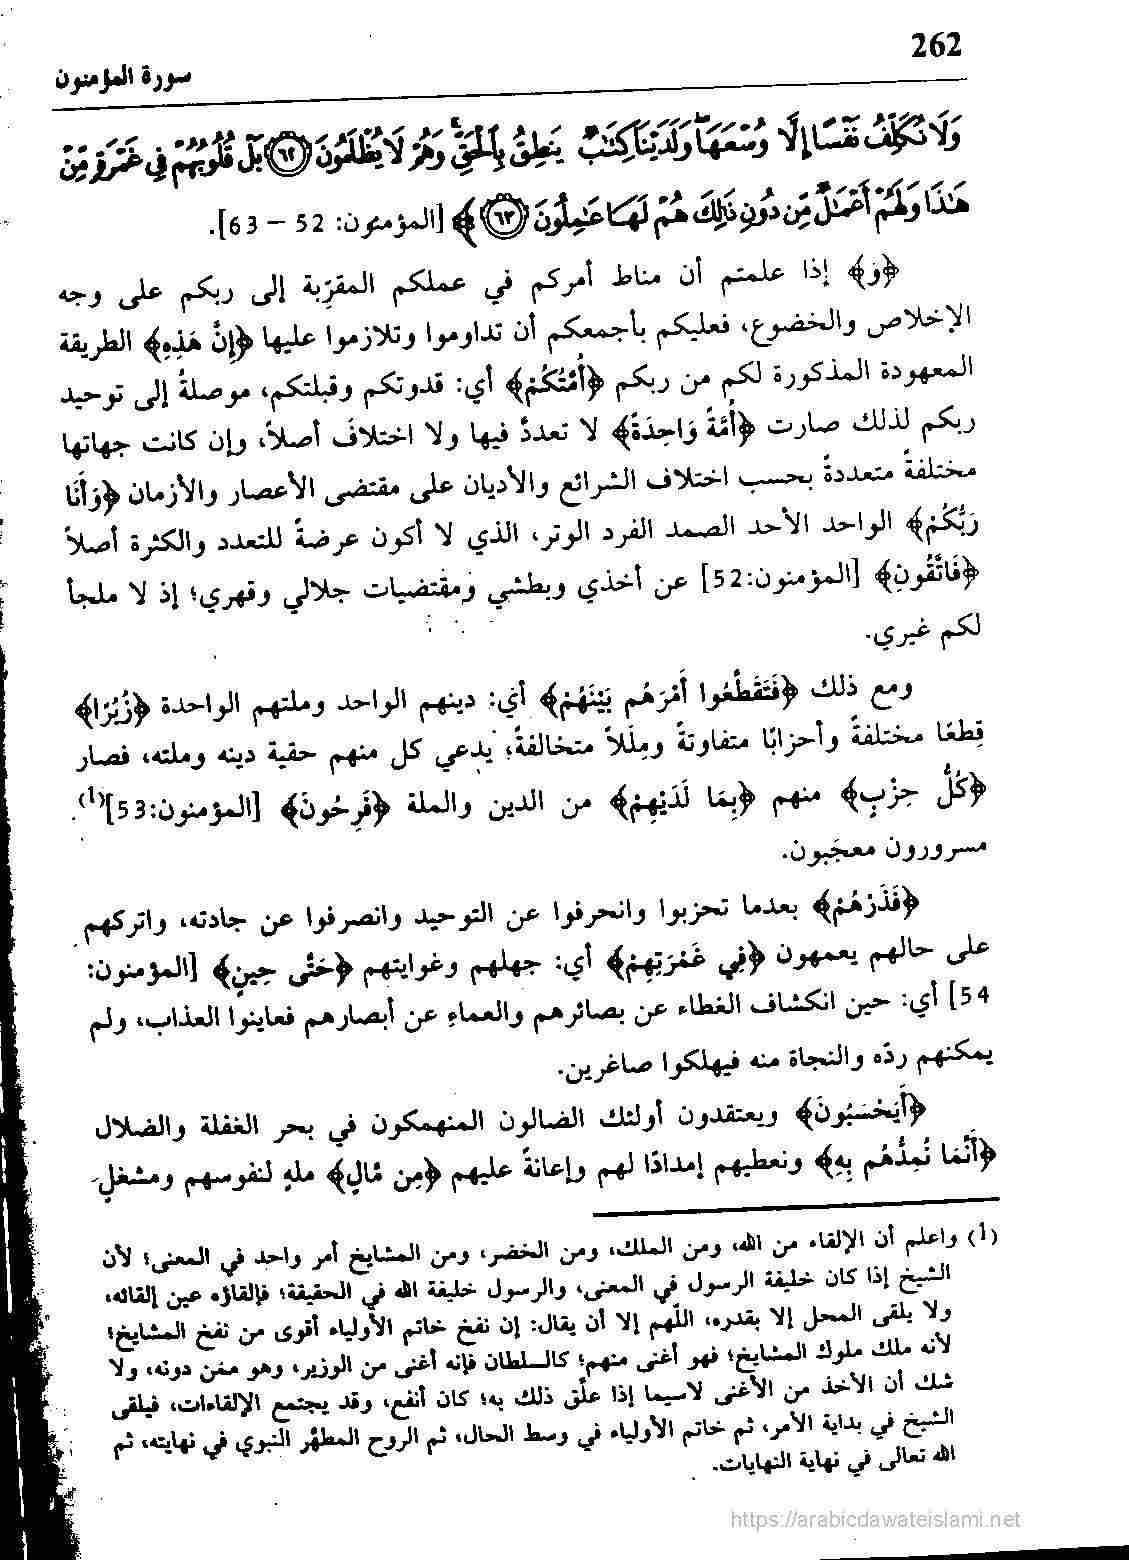 262
سورة المؤمنون
وَلَا نُكَلِّفُ نَفْسًا إِلَّا وُسْعَهَا وَلَدَيْنَا كِتَابٌ يَنطِقُ بِالْحَقِّ وَهُمْ لَا يُظْلَمُونَ ﴿٦٢﴾ بَلْ قُلُوبُهُمْ فِي غَمْرَةٍ مِّنْ
هَٰذَا وَلَهُمْ أَعْمَالٌ مِّن دُونِ ذَٰلِكَ هُمْ لَهَا عَامِلُونَ ﴿٦٣﴾﴾ [المؤمنون: 52 – 63].
﴿وَ﴾ إذا علمتم أن مناط أمركم في عملكم المقرِّبة إلى ربكم على وجه
الإخلاص والخضوع، فعليكم بأجمعكم أن تداوموا وتلازموا عليها ﴿إِنَّ هَذِهِ﴾ الطريقة
المعهودة المذكورة لكم من ربكم ﴿أُمَّتُكُمْ﴾ أي: قدوتكم وقبلتكم، موصلةٌ إلى توحيد
ربكم لذلك صارت ﴿أُمَّةً وَاحِدَةً﴾ لا تعددَّ فيها ولا اختلافَ أصلاً، وإن كانت جهاتها
مختلفةً متعددةً بحسب اختلاف الشرائع والأديان على مقتضى الأعصار والأزمان ﴿وَأَنَا
رَبُّكُمْ﴾ الواحد الأحد الصمد الفرد الوتر، الذي لا أكون عرضةً للتعدد والكثرة أصلاً
﴿فَاتَّقُونِ﴾ [المؤمنون:52] عن أخذي وبطشي ومقتضيات جلالي وقهري؛ إذ لا ملجأ
لكم غيري.
ومع ذلك ﴿فَتَقَطَّعُوا أَمْرَهُم بَيْنَهُمْ﴾ أي: دينهم الواحد وملتهم الواحدة ﴿زُبُرًا﴾
قِطعًا مختلفةً وأحزابًا متفاوتةً ومِلَلاً متخالفةً؛ يدعي كل منهم حقية دينه وملته، فصار
﴿كُلُّ حِزْبٍ﴾ منهم ﴿بِمَا لَدَيْهِمْ﴾ من الدين والملة ﴿فَرِحُونَ﴾ [المؤمنون:53](1).
مسرورون معجَبون.
﴿فَذَرْهُمْ﴾ بعدما تحزبوا وانحرفوا عن التوحيد وانصرفوا عن جادته، واتركهم
على حالهم يعمهون ﴿فِي غَمْرَتِهِمْ﴾ أي: جهلهم وغوايتهم ﴿حَتَّى حِينٍ﴾ [المؤمنون:
54] أي: حين انكشاف الغطاء عن بصائرهم والعماءِ عن أبصارهم فعاينوا العذاب، ولم
يمكنهم ردّه والنجاة منه فيهلكوا صاغرين.
﴿أَيَحْسَبُونَ﴾ ويعتقدون أولئك الضالون المنهمكون في بحر الغفلة والضلال
﴿أَنَّمَا نُمِدُّهُم بِهِ﴾ ونعطيهم إمدادًا لهم وإعانةً عليهم ﴿مِن مَّالٍ﴾ ملهٍ لنفوسهم ومشغلٍ
(1) واعلم أن الإلقاء من الله، ومن الملك، ومن الخضر، ومن المشايخ أمر واحد في المعنى؛ لأن
الشيخ إذا كان خليفة الرسول في المعنى، والرسول خليفة الله في الحقيقة؛ فإلقاؤه عين إلقائه،
ولا يلقى المحل إلا بقدره، اللّهم إلا أن يقال: إن نفخ خاتم الأولياء أقوى من نفخ المشايخ؛
لأنه ملك ملوك المشايخ؛ فهو أغنى منهم؛ كالسلطان فإنه أغنى من الوزير، وهو ممَن دونه، ولا
شك أن الأخذ من الأغنى لاسيما إذا علّق ذلك به؛ كان أنفع، وقد يجتمع الإلقاءات، فيلقى
الشيخ في بداية الأمر، ثم خاتم الأولياء في وسط الحال، ثم الروح المطهَّر النبوي في نهايته، ثم
الله تعالى في نهاية النهايات.
https://arabicdawateislami.net